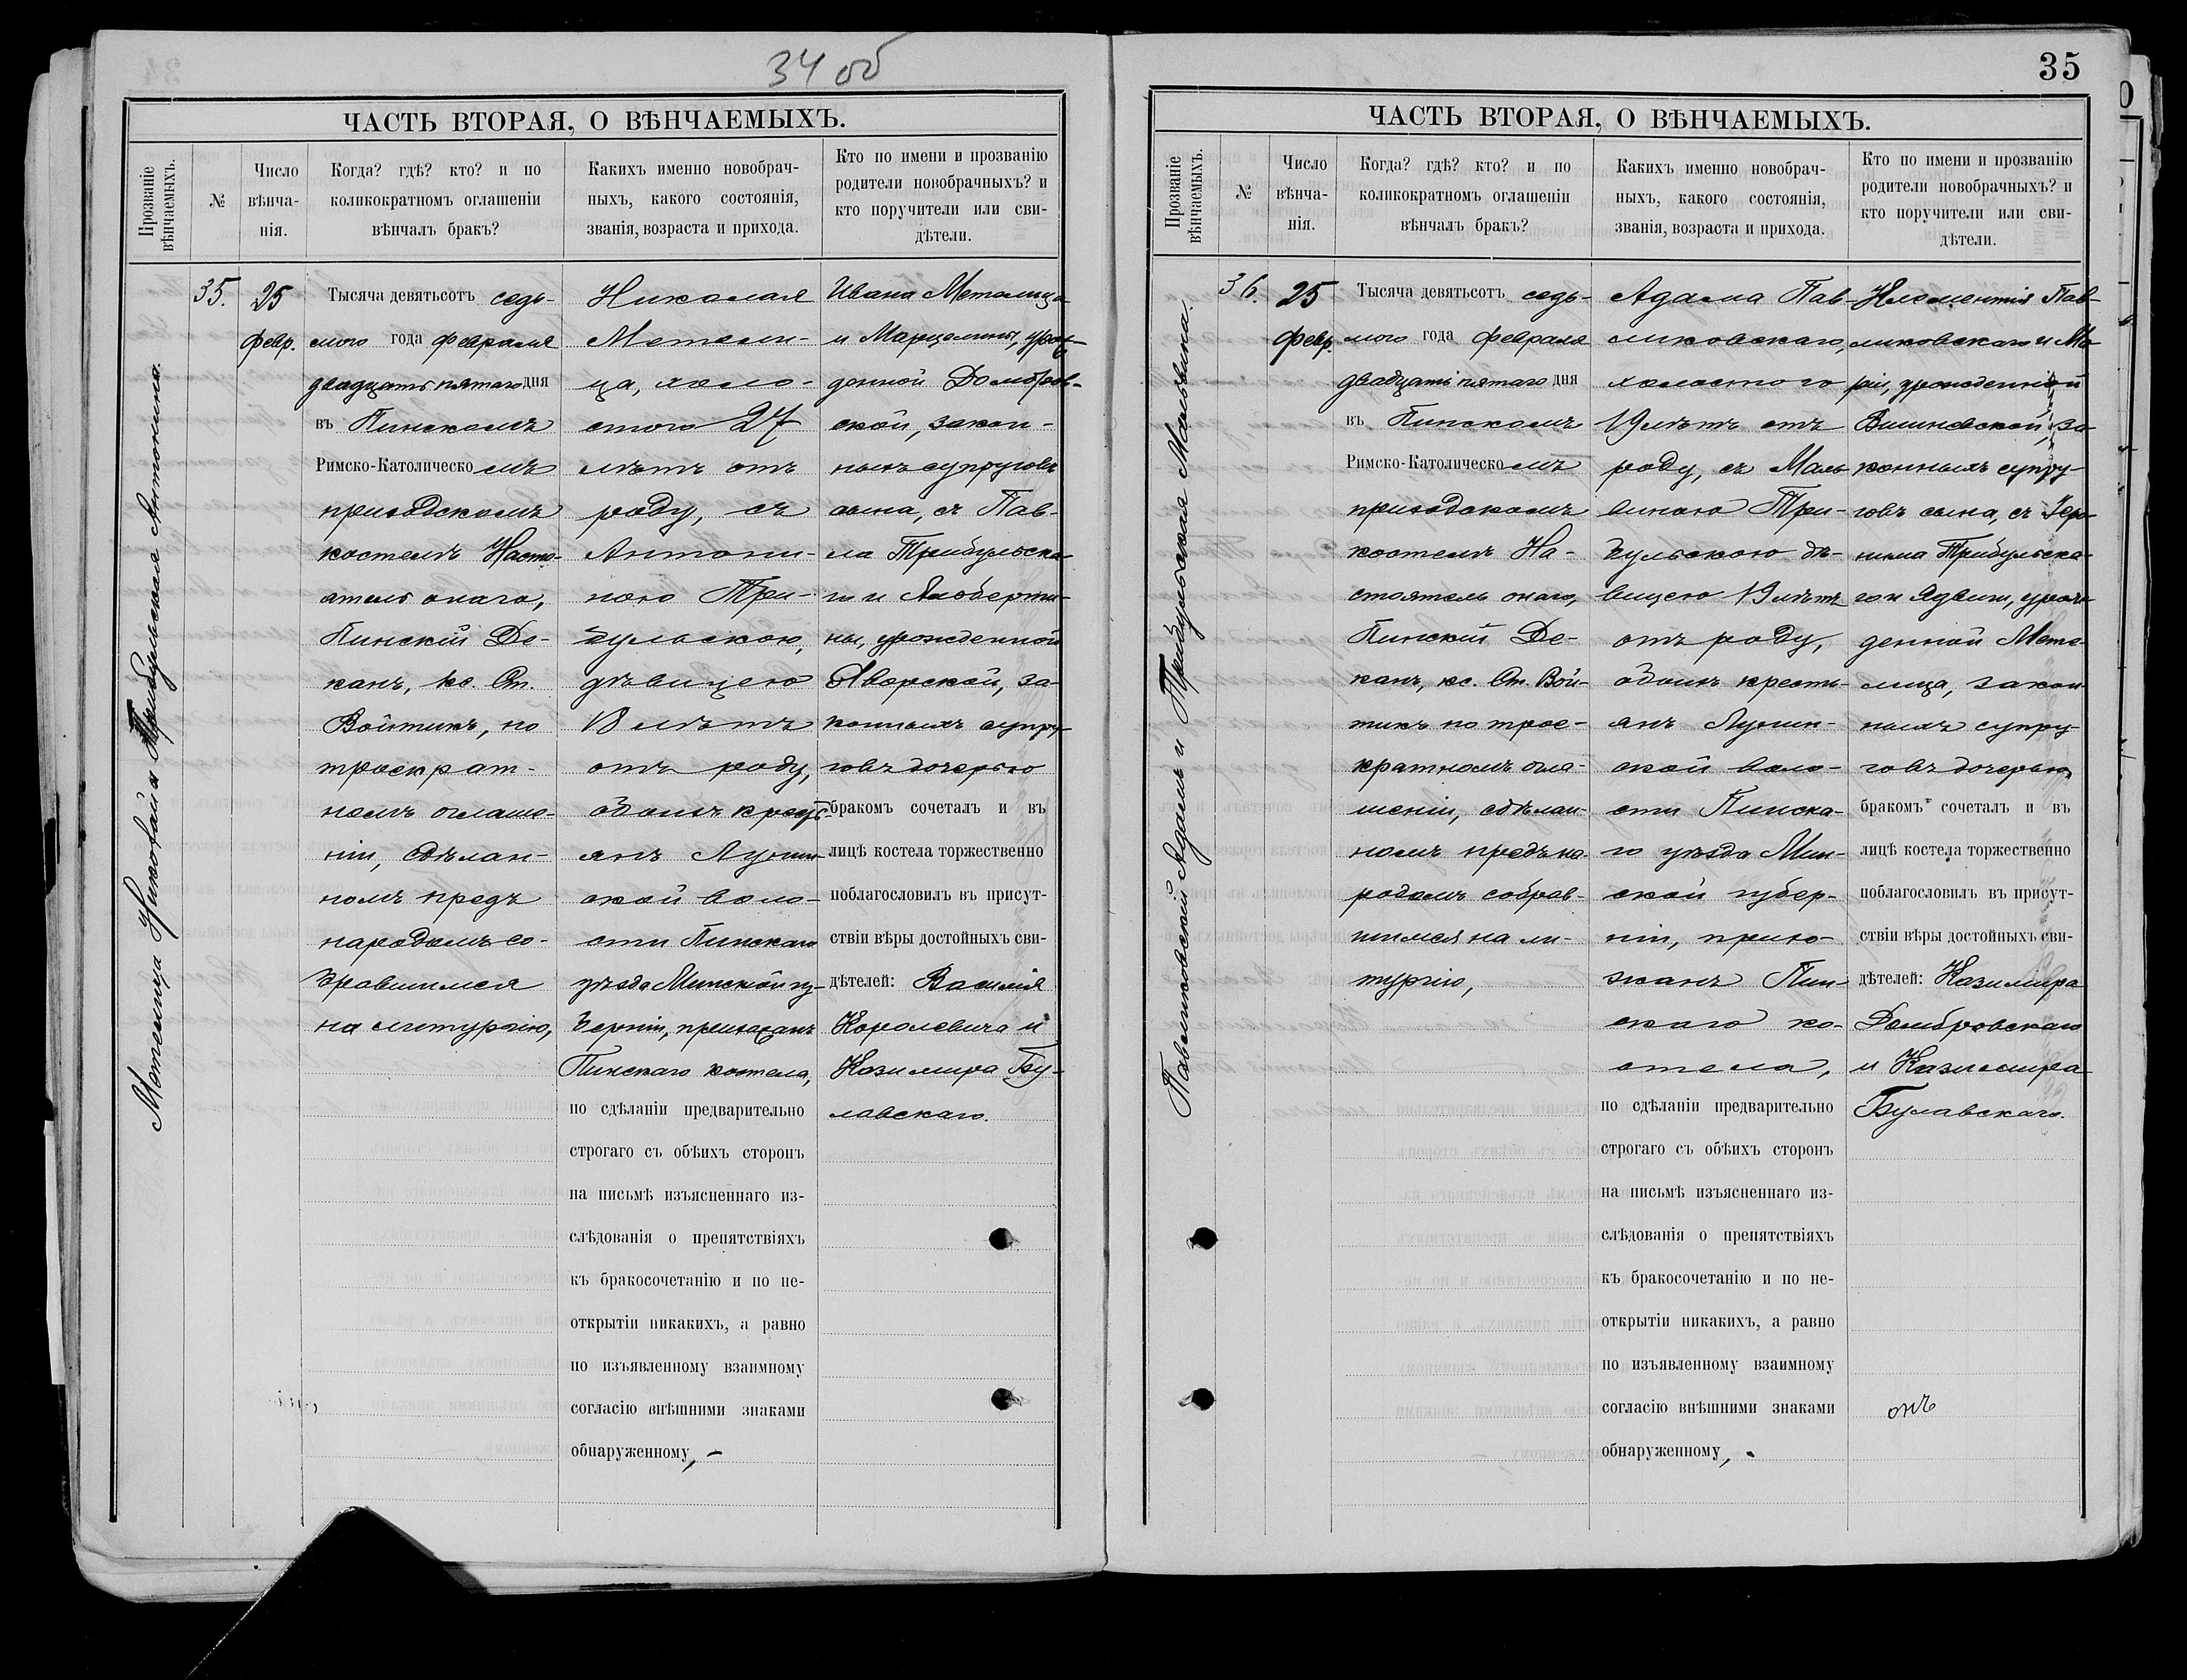 34 об
ЧАСТЬ ВТОРАЯ, О ВѢНЧАЕМЫХЪ.
Прозваніе вѣнчаемыхъ.
№
Число вѣнча-
нія.
Когда? гдѣ? кто? и по
коликократномъ оглашеніи
вѣнчалъ бракъ?
Какихъ именно новобрач-
ныхъ, какого состоянія,
званія, возраста и прихода.
Кто по имени и прозванію
родители новобрачныхъ? и
кто поручители или сви-
дѣтели.
Метелица Николай и Трибульская Антонина.
35.
25
февр.
Тысяча девятьсотъ седь-
мого года февраля
двадцать пятаго дня
въ Пинскомъ
Римско-Католическомъ
приходскомъ
костелѣ Насто-
ятель онаго,
Пинскій Де-
канъ, кс. Ст.
Войтикъ, по
троекрат-
номъ оглаше-
ніи, сдѣлан-
номъ предъ
народомъ со-
бравшимся
на литургію,
Николая
Метели-
ца, холо-
стого 27
лѣтъ отъ
роду, съ
Антони-
ною Три-
бульскою,
дѣвицею
18 лѣтъ
отъ роду,
обоихъ кресть-
янъ Лунин-
ской воло-
сти Пинскаго
уѣзда Минской гу-
берніи, прихожанъ
Пинскаго костела,
по сдѣланіи предварительно
строгаго съ обѣихъ сторонъ
на письмѣ изъясненнаго из-
слѣдованія о препятствіяхъ
къ бракосочетанію и по не-
открытіи никакихъ, а равно
по изъявленному взаимному
согласію внѣшними знаками
обнаруженному, –
Ивана Метелица
и Марцелины, урож-
денной Домбров-
ской, закон-
ныхъ супруговъ
сына, съ Пав-
ла Трибульска-
го и Альберти-
ны, урожденной
Яворской, за-
конныхъ супру-
говъ дочерью
бракомъ сочеталъ и въ
лицѣ костела торжественно
поблагословилъ въ присут-
ствіи вѣры достойныхъ сви-
дѣтелей: Василія
Королевича и
Казимира Бу-
лавскаго.
35
ЧАСТЬ ВТОРАЯ, О ВѢНЧАЕМЫХЪ.
Прозваніе вѣнчаемыхъ.
№
Число
вѣнча-
нія.
Когда? гдѣ? кто? и по
коликократномъ оглашеніи
вѣнчалъ бракъ?
Какихъ именно новобрач-
ныхъ, какого состоянія,
званія, возраста и прихода.
Кто по имени и прозванію
родители новобрачныхъ? и
кто поручители или сви-
дѣтели.
Павликовскій Адамъ и Трибульская Мальвина.
36.
25
февр.
Тысяча девятьсотъ седь-
мого года февраля
двадцать пятаго дня
въ Пинскомъ
Римско-Католическомъ
приходскомъ
костелѣ На-
стоятель онаго,
Пинскій Де-
канъ, кс. Ст. Вой-
тикъ по трое-
кратномъ огла-
шеніи, сдѣлан-
номъ предъ на-
родомъ собрав-
шимся на ли-
тургію,
Адама Пав-
ликовскаго,
холостого
19 лѣтъ отъ
роду, съ Маль-
виною Три-
бульскою дѣ-
вицею 19 лѣтъ
отъ роду,
обоихъ кресть-
янъ Лунин-
ской воло-
сти Пинска-
го уѣзда Мин-
ской губер-
ніи, прихо-
жанъ Пин-
скаго ко-
стела,
по сдѣланіи предварительно
строгаго съ обѣихъ сторонъ
на письмѣ изъясненнаго из-
слѣдованія о препятствіяхъ
къ бракосочетанію и по не-
открытіи никакихъ, а равно
по изъявленному взаимному
согласію внѣшними знаками
обнаруженному, -
Клементія Пав-
ликовскаго и Ма-
ріи, урожденной
Вишневской, за-
конныхъ супру-
говъ сына, съ Іеро-
нима Трибульска-
го и Ядвиги, урож-
денной Мете-
лица, закон-
ныхъ супру-
говъ дочерью
бракомъ сочеталъ и въ
лицѣ костела торжественно
поблагословилъ въ присут-
ствіи вѣры достойныхъ сви-
дѣтелей: Казиміра
Домбровскаго
и Казимира
Булавскаго.